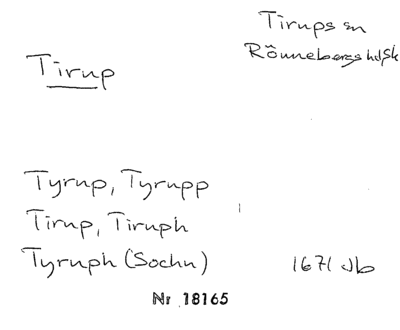 Tirups sn
Rönnebergs hd, Sk
Tirup
Tyrup, Tyrupp
Tirup, Tiruph
Tyruph (Sochn) 1671 Jb
Nr 18165